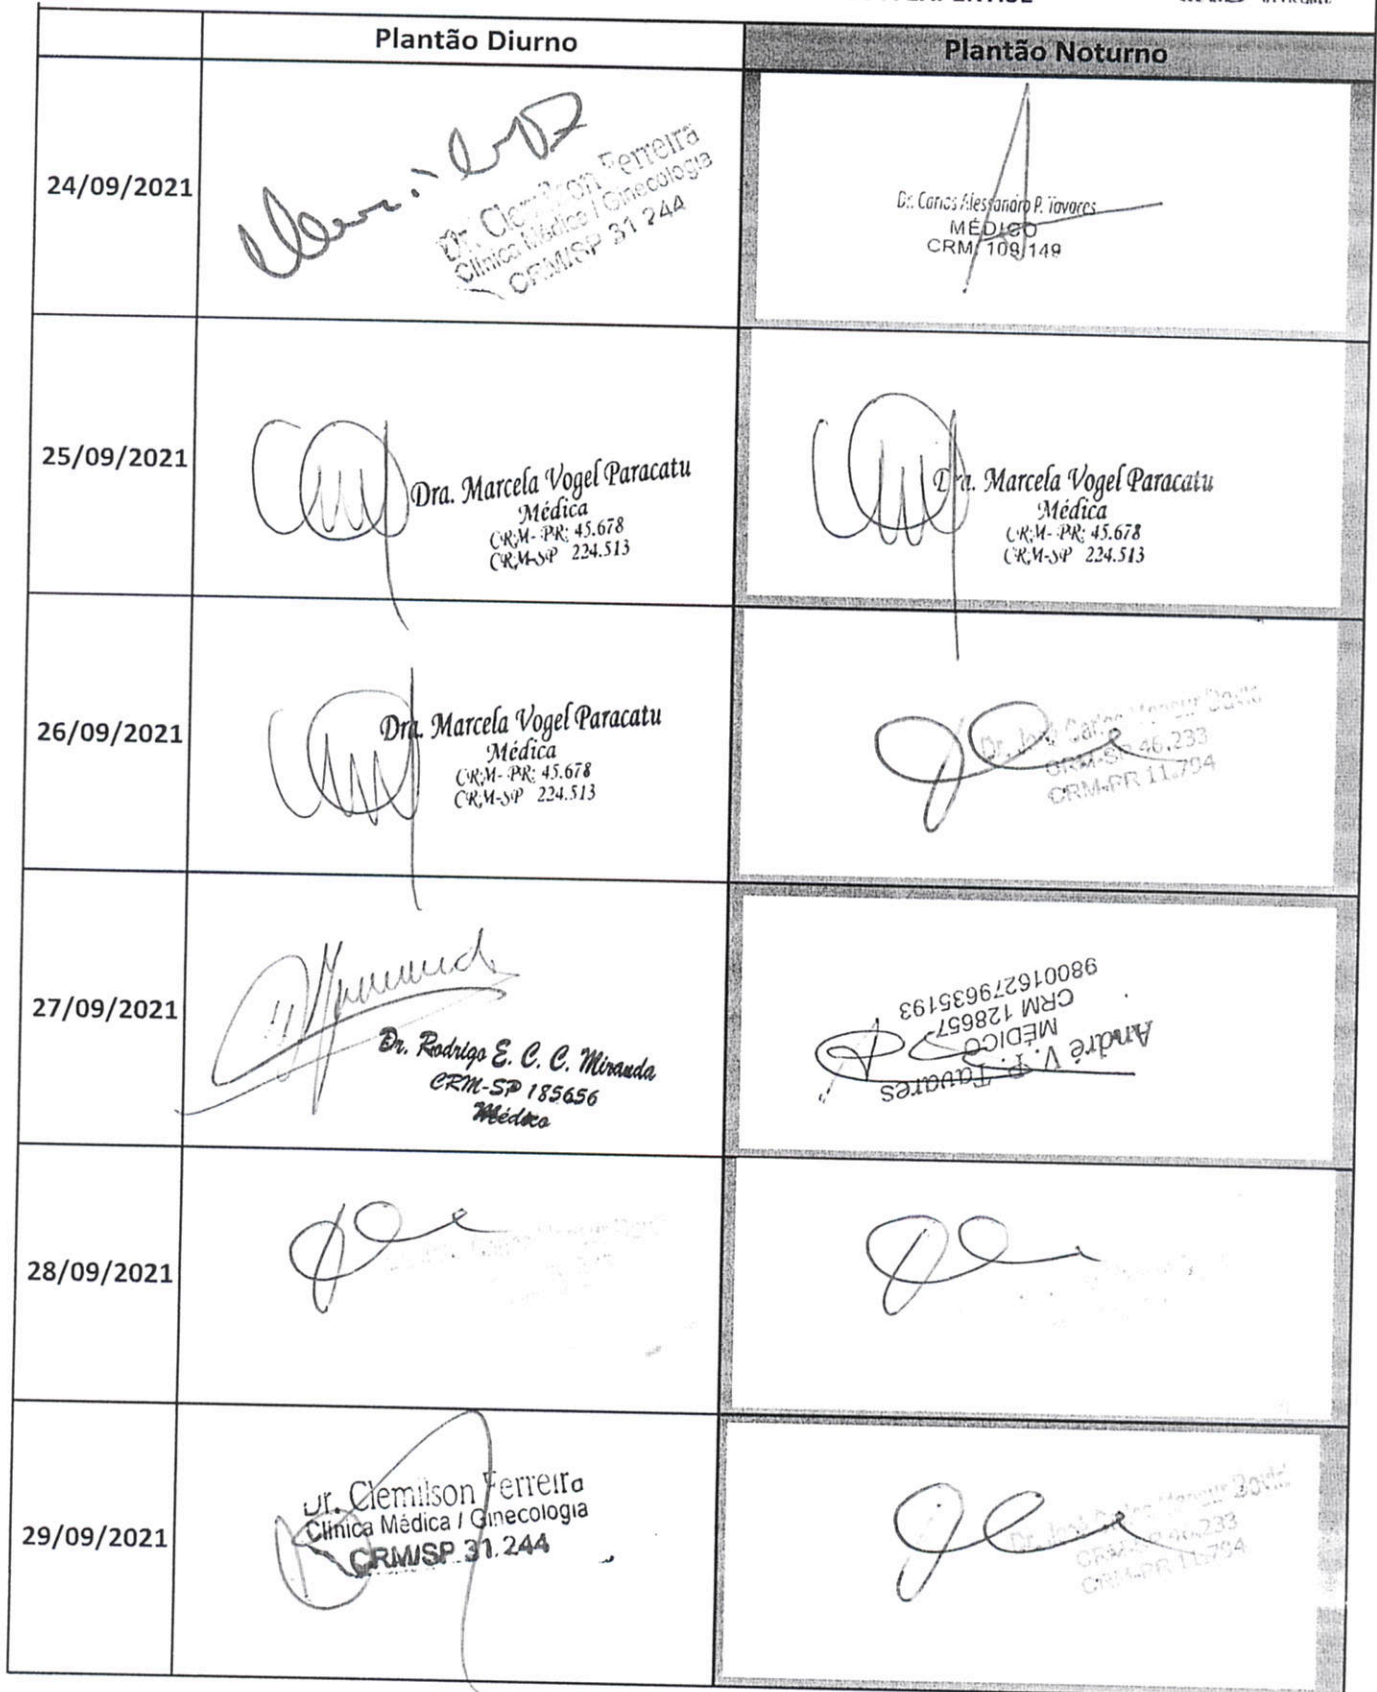 Plantão Diurno
Plantão Noturno
24/09/2021
Dr. Clemilson Ferreira
Clínica Médica / Ginecologia
CRM/SP 31 244
Dr. Carlos Alessandro P. Tavares
MÉDICO
CRM 109 149
25/09/2021
Dra. Marcela Vogel Paracatu
Médica
CRM-PR: 45.678
CRM-SP 224.513
Dra. Marcela Vogel Paracatu
Médica
CRM-PR: 45.678
CRM-SP 224.513
26/09/2021
Dra. Marcela Vogel Paracatu
Médica
CRM-PR: 45.678
CRM-SP 224.513
Dr. José Carlos Mansur David
CRM-SP 46.233
CRM-PR 11.794
27/09/2021
Dr. Rodrigo E. C. C. Miranda
CRM-SP 185656
Médico
André V. P. Tavares
MÉDICO
CRM 128657
980016279635193
28/09/2021
29/09/2021
Dr. Clemilson Ferreira
Clínica Médica / Ginecologia
CRM/SP 31.244
Dr. José Carlos Mansur David
CRM-SP 46.233
CRM-PR 11.794